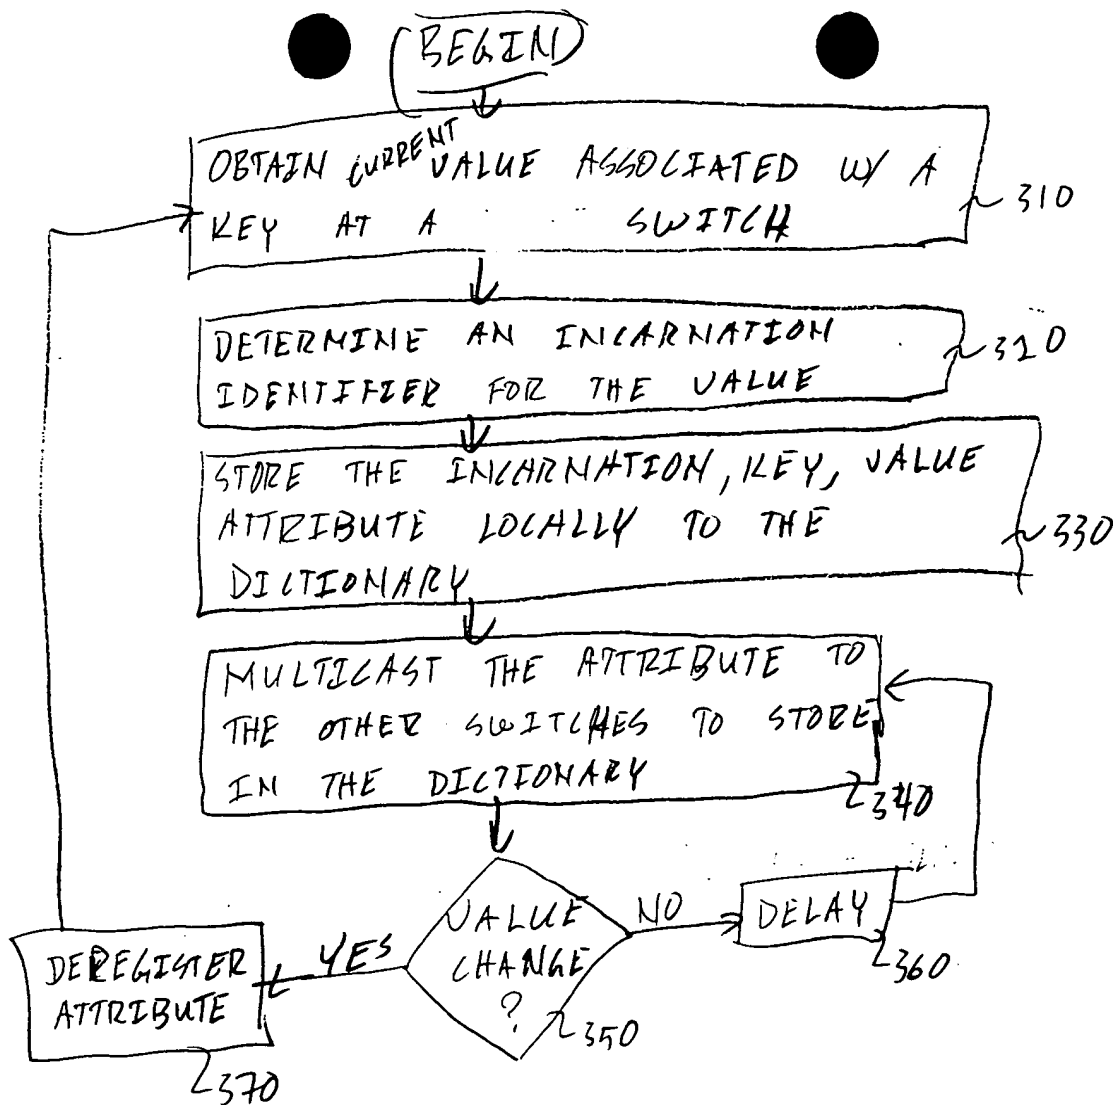 BEGIN
OBTAIN CURRENT VALUE ASSOCIATED W/ A
KEY AT A SWITCH
310
DETERMINE AN INCARNATION
IDENTIFIER FOR THE VALUE
320
STORE THE INCARNATION, KEY, VALUE
ATTRIBUTE LOCALLY TO THE
DICTIONARY
330
MULTICAST THE ATTRIBUTE TO
THE OTHER SWITCHES TO STORE
IN THE DICTIONARY
340
VALUE
CHANGE
?
350
NO
DELAY
360
YES
DEREGISTER
ATTRIBUTE
370